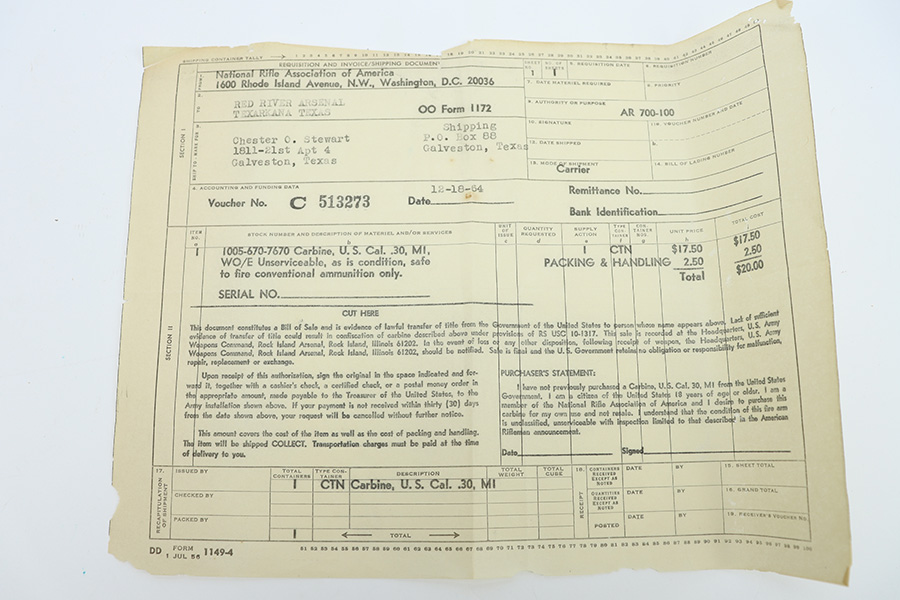 SHIPPING CONTAINER TALLY
REQUISITION AND INVOICE/SHIPPING DOCUMENT
National Rifle Association of America
1600 Rhode Island Avenue, N.W., Washington, D.C. 20036
SHEET NO. 1
NO. OF SHEETS 1
5. REQUISITION DATE
6. REQUISITION NUMBER
7. DATE MATERIEL REQUIRED
8. PRIORITY
TO
RED RIVER ARSENAL
TEXARKANA TEXAS
OO Form 1172
9. AUTHORITY OR PURPOSE
AR 700-100
10. SIGNATURE
11a. VOUCHER NUMBER AND DATE
SECTION I
SHIP TO - MARK FOR
Chester O. Stewart
1811-21st Apt 4
Galveston, Texas
Shipping
P.O. Box 88
Galveston, Texas
12. DATE SHIPPED
b.
13. MODE OF SHIPMENT
Carrier
14. BILL OF LADING NUMBER
4. ACCOUNTING AND FUNDING DATA
Voucher No. C 513273
Date 12-18-64
Remittance No.
Bank Identification
ITEM NO. a
STOCK NUMBER AND DESCRIPTION OF MATERIEL AND/OR SERVICES b
UNIT OF ISSUE c
QUANTITY REQUESTED d
SUPPLY ACTION e
TYPE CON- TAINER f
CON- TAINER NOS. g
UNIT PRICE h
TOTAL COST
1 1005-670-7670 Carbine, U. S. Cal. .30, M1, 1 CTN $17.50 $17.50
WO/E Unserviceable, as is condition, safe PACKING & HANDLING 2.50 2.50
to fire conventional ammunition only. Total $20.00
SERIAL NO.
CUT HERE
SECTION II
This document constitutes a Bill of Sale and is evidence of lawful transfer of title from the Government of the United States to person whose name appears above. Lack of sufficient
evidence of transfer of title could result in confiscation of carbine described above under provisions of RS USC 10-1317. This sale is recorded at the Headquarters, U.S. Army
Weapons Command, Rock Island Arsenal, Rock Island, Illinois 61202. In the event of loss or any other disposition, following receipt of weapon, the Headquarters, U. S. Army
Weapons Command, Rock Island Arsenal, Rock Island, Illinois 61202, should be notified. Sale is final and the U. S. Government retains no obligation or responsibility for malfunction,
repair, replacement or exchange.
Upon receipt of this authorization, sign the original in the space indicated and for-
ward it, together with a cashier's check, a certified check, or a postal money order in
the appropriate amount, made payable to the Treasurer of the United States, to the
Army installation shown above. If your payment is not received within thirty (30) days
from the date shown above, your request will be cancelled without further notice.
This amount covers the cost of the item as well as the cost of packing and handling.
The item will be shipped COLLECT. Transportation charges must be paid at the time
of delivery to you.
PURCHASER'S STATEMENT:
I have not previously purchased a Carbine, U.S. Cal. 30, M1 from the United States
Government. I am a citizen of the United States 18 years of age or older. I am a
member of the National Rifle Association of America and I desire to purchase this
carbine for my own use and not resale. I understand that the condition of this fire arm
is unclassified, unserviceable with inspection limited to that described in the American
Rifleman announcement.
Date Signed
17.
RECAPITULATION OF SHIPMENT
ISSUED BY
CHECKED BY
PACKED BY
TOTAL CONTAINERS
TYPE CON- TAINER
DESCRIPTION
TOTAL WEIGHT
TOTAL CUBE
CTN Carbine, U. S. Cal. .30, M1
1
TOTAL
18.
RECEIPT
CONTAINERS RECEIVED EXCEPT AS NOTED
DATE
BY
15. SHEET TOTAL
QUANTITIES RECEIVED EXCEPT AS NOTED
DATE
BY
16. GRAND TOTAL
POSTED
DATE
BY
19. RECEIVER'S VOUCHER NO.
DD FORM 1 JUL 56 1149-4
51 52 53 54 55 56 57 58 59 60 61 62 63 64 65 66 67 68 69 70 71 72 73 74 75 76 77 78 79 80 81 82 83 84 85 86 87 88 89 90 91 92 93 94 95 96 97 98 99 100